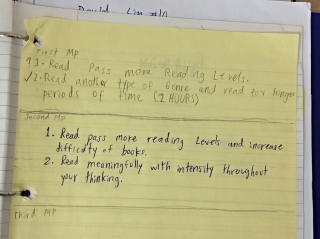 David
First MP
1. Read Pass more Reading Levels.
✓2. Read another type of Genre and read for longer
periods of time (2 HOURS)
Second MP
1. Read pass more reading Levels and increase
difficulty of books.
2. Read meaningfully with intensity throughout
your thinking.
third MP